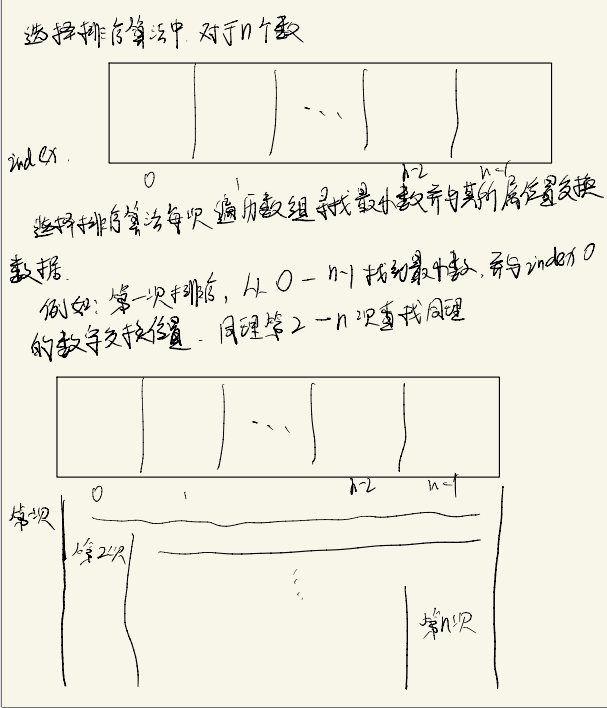 选择排序算法中. 对于n个数
...
index.
0 1 n-2 n-1
选择排序算法每次遍历数组寻找最小数并与其所属位置交换
数据.
例如: 第一次排序, 从0-n-1找到最小数, 并与index 0
的数字交换位置. 同理第2-n次查找同理
...
0 1 n-2 n-1
第一次
第2次
第n次